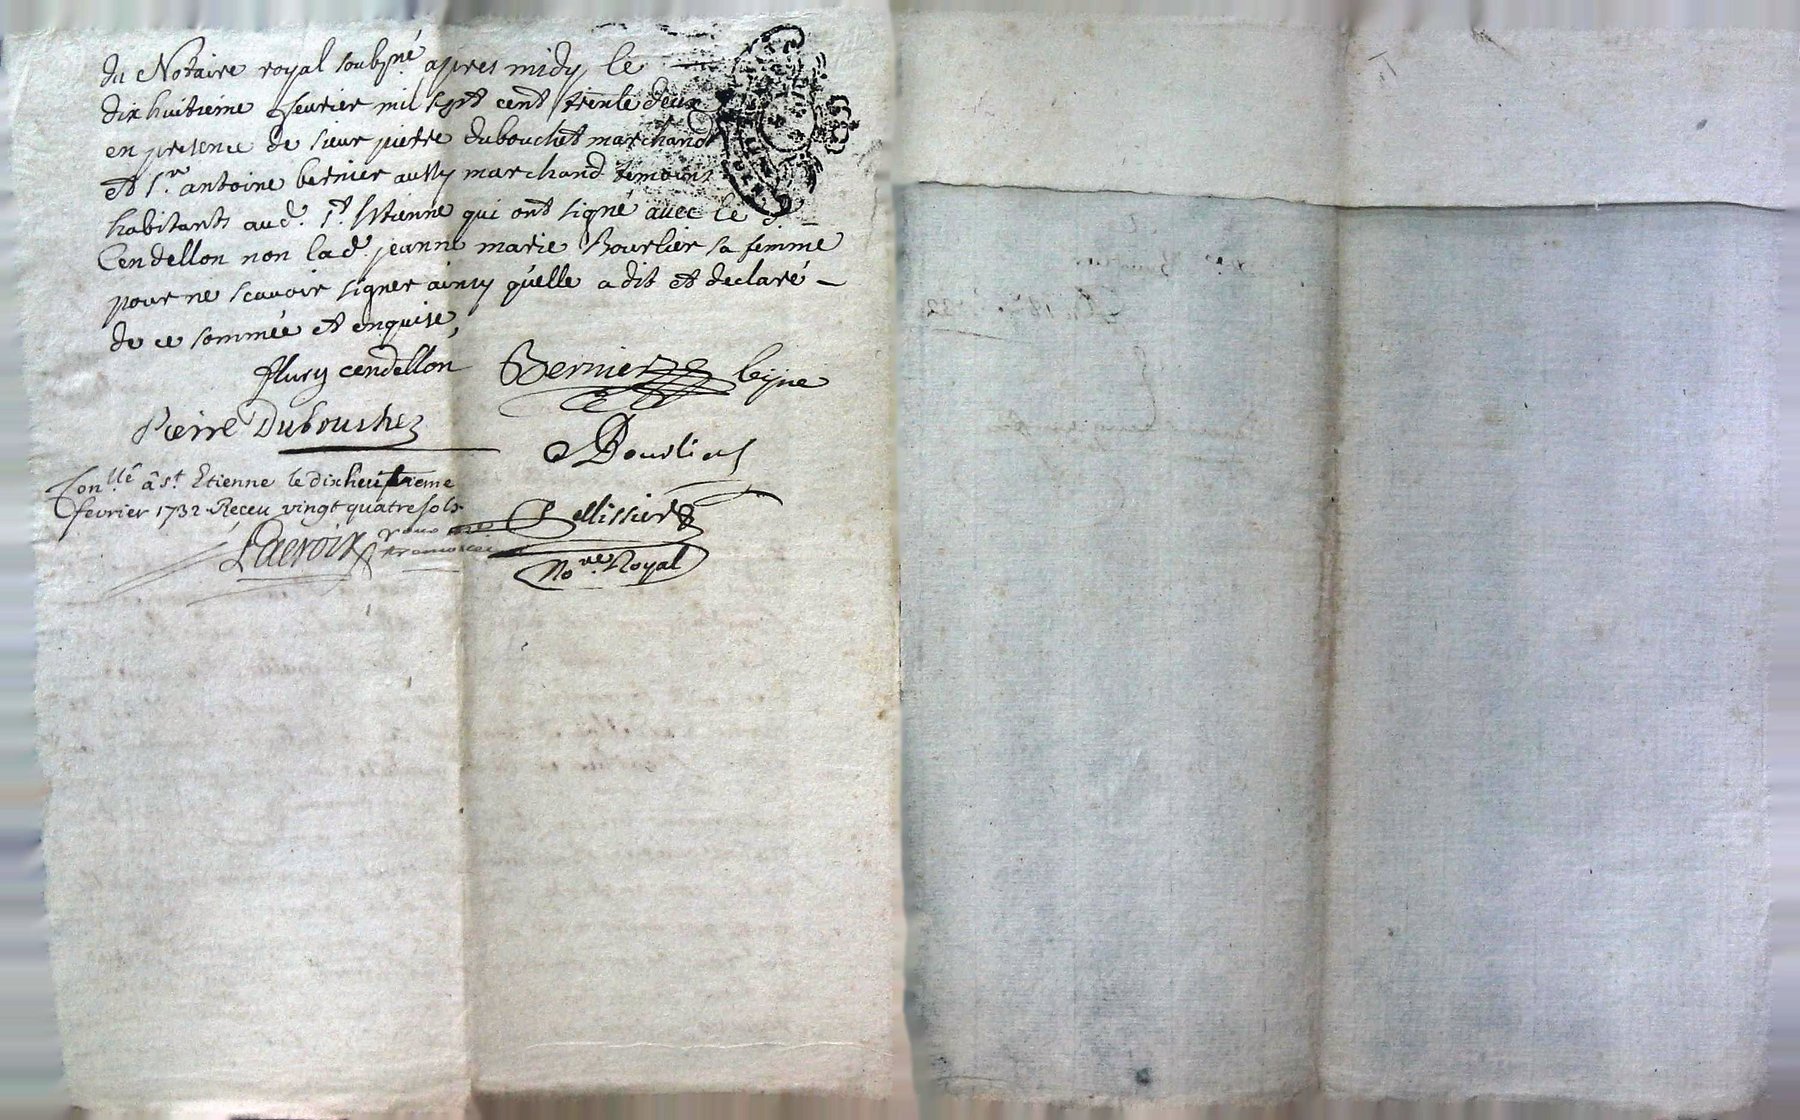 du Notaire royal soubsné apres midy le
dix huitieme feurier mil sept cent trente deux
en presence de sieur pierre dubouchet marchand
et sr. antoine bernier aussy marchand temoins
habitants aud. st. Etienne qui ont signé avec le d.
Cendellon non lad. jeanne marie Bourlier sa femme
pour ne scavoir signer ainsy qu'elle a dit et declaré
de ce sommée et enquise
flury cendellon
Bernier lejne
Pierre Dubouchez
Bourlier
Conllé â st. Etienne le dix huitieme
fevrier 1732 Receu vingt quatre sols
Lacroix
Pellissier
Nore. Royal